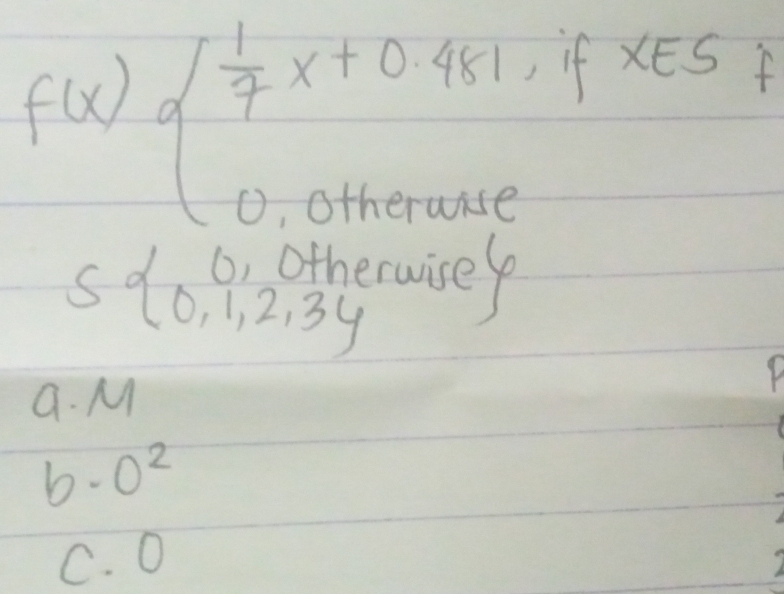 f(x) { 1/7 x + 0.481, if xES f
0, otherwise
S { 0, Otherwise }
0, 1, 2, 3 }
a. M
b. O²
c. O